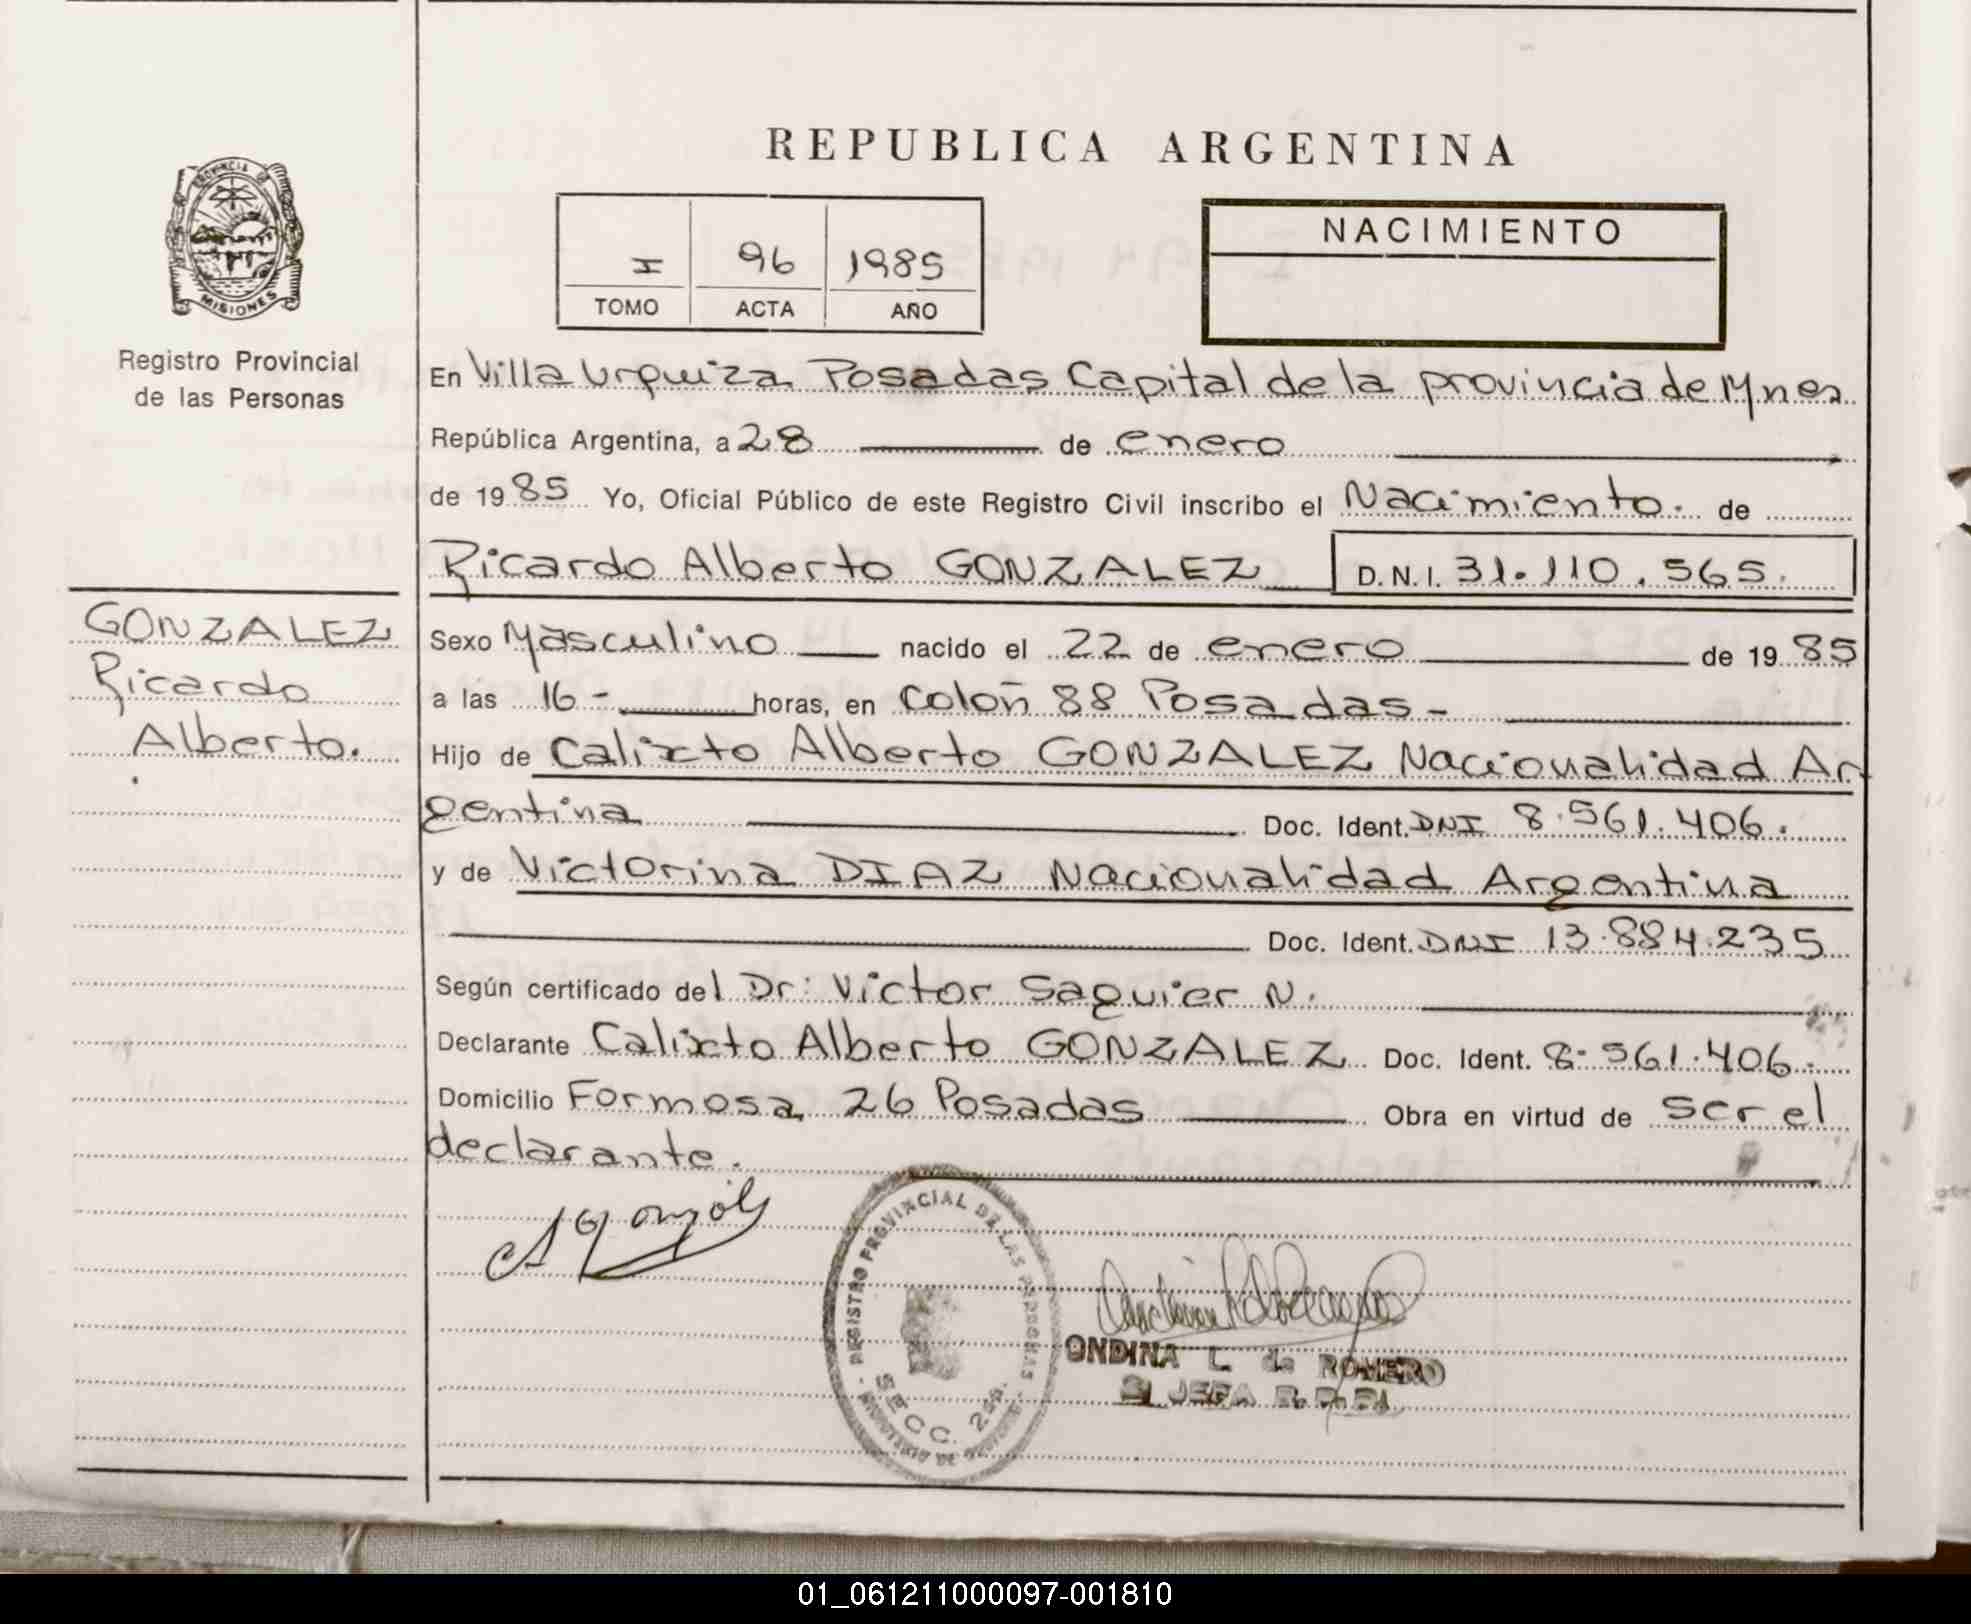 REPUBLICA ARGENTINA
PROVINCIA DE
MISIONES
Registro Provincial
de las Personas
I 96 1985
TOMO ACTA AÑO
NACIMIENTO
En Villa Urquiza Posadas Capital de la provincia de Mnes
República Argentina, a 28 de enero
de 1985 Yo, Oficial Público de este Registro Civil inscribo el Nacimiento. de
Ricardo Alberto GONZALEZ D.N.I. 31.110.565.
GONZALEZ
Ricardo
Alberto.
Sexo Masculino nacido el 22 de enero de 1985
a las 16- horas, en Colón 88 Posadas-
Hijo de Calixto Alberto GONZALEZ Nacionalidad Ar
gentina Doc. Ident. DNI 8.561.406.
y de Victorina DIAZ Nacionalidad Argentina
Doc. Ident. DNI 13.884.235
Según certificado del Dr: Victor Saguier N.
Declarante Calixto Alberto GONZALEZ Doc. Ident. 8.561.406.
Domicilio Formosa 26 Posadas Obra en virtud de ser el
declarante.
REGISTRO PROVINCIAL DE LAS PERSONAS
SECC.
ONDINA L. de ROMERO
JEFA
01_061211000097-001810